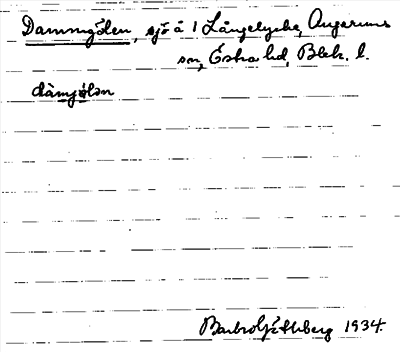 Dammgölen, sjö å 1 Långelycke, Augerums
sn, Östra hd, Blek. l.
dàmjö̀lən
Barbro Göthberg 1934.